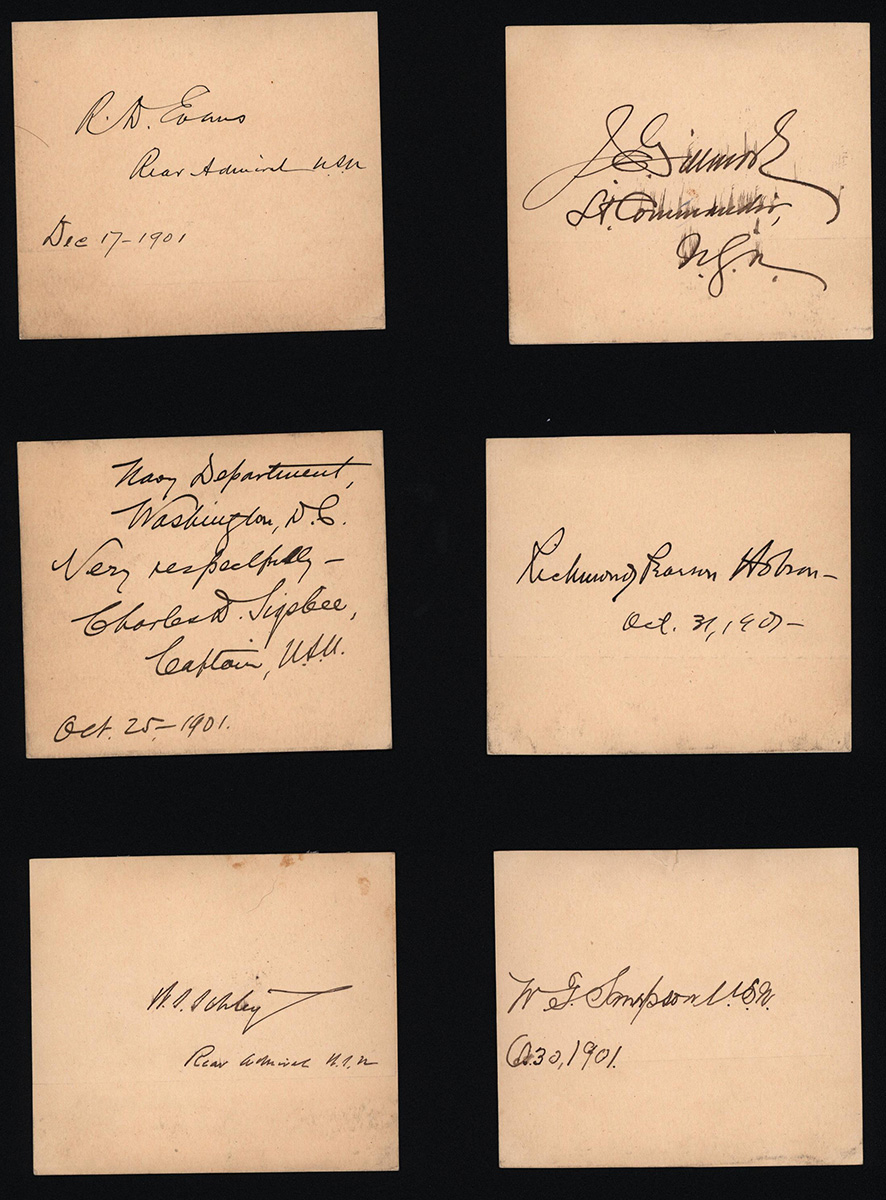 R. D. Evans
Rear Admiral U.S.N
Dec 17 - 1901
J. C. Gillmore
Lt. Commander,
U.S.N.
Navy Department,
Washington, D.C.
Very respectfully -
Charles D. Sigsbee,
Captain, U.S.N.
Oct. 25, - 1901.
Richmond Pearson Hobson -
Oct. 31, 1901 -
W. S. Schley
Rear Admiral U.S.N
W. T. Sampson U.S.N.
O. 30, 1901.